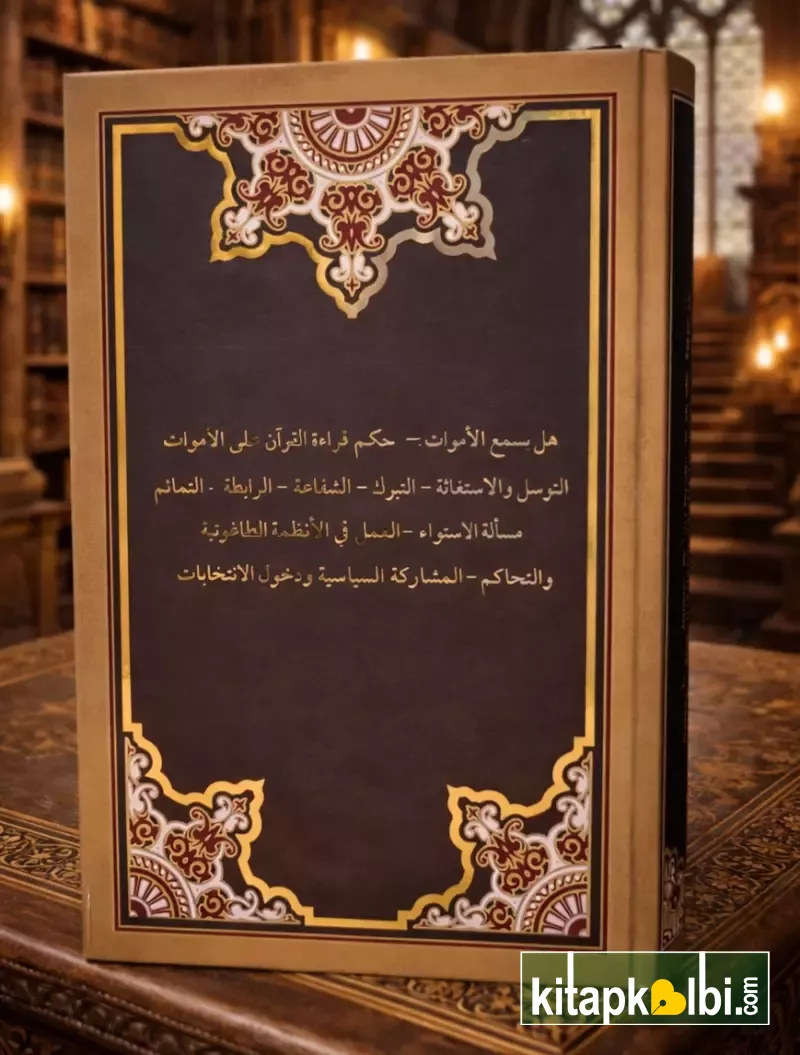 هل يسمع الأموات - حكم قراءة القرآن على الأموات
التوسل والاستغاثة - التبرك - الشفاعة - الرابطة - التمائم
مسألة الاستواء - العمل في الأنظمة الطاغوتية
والتحاكم - المشاركة السياسية ودخول الانتخابات
kitapkalbi.com